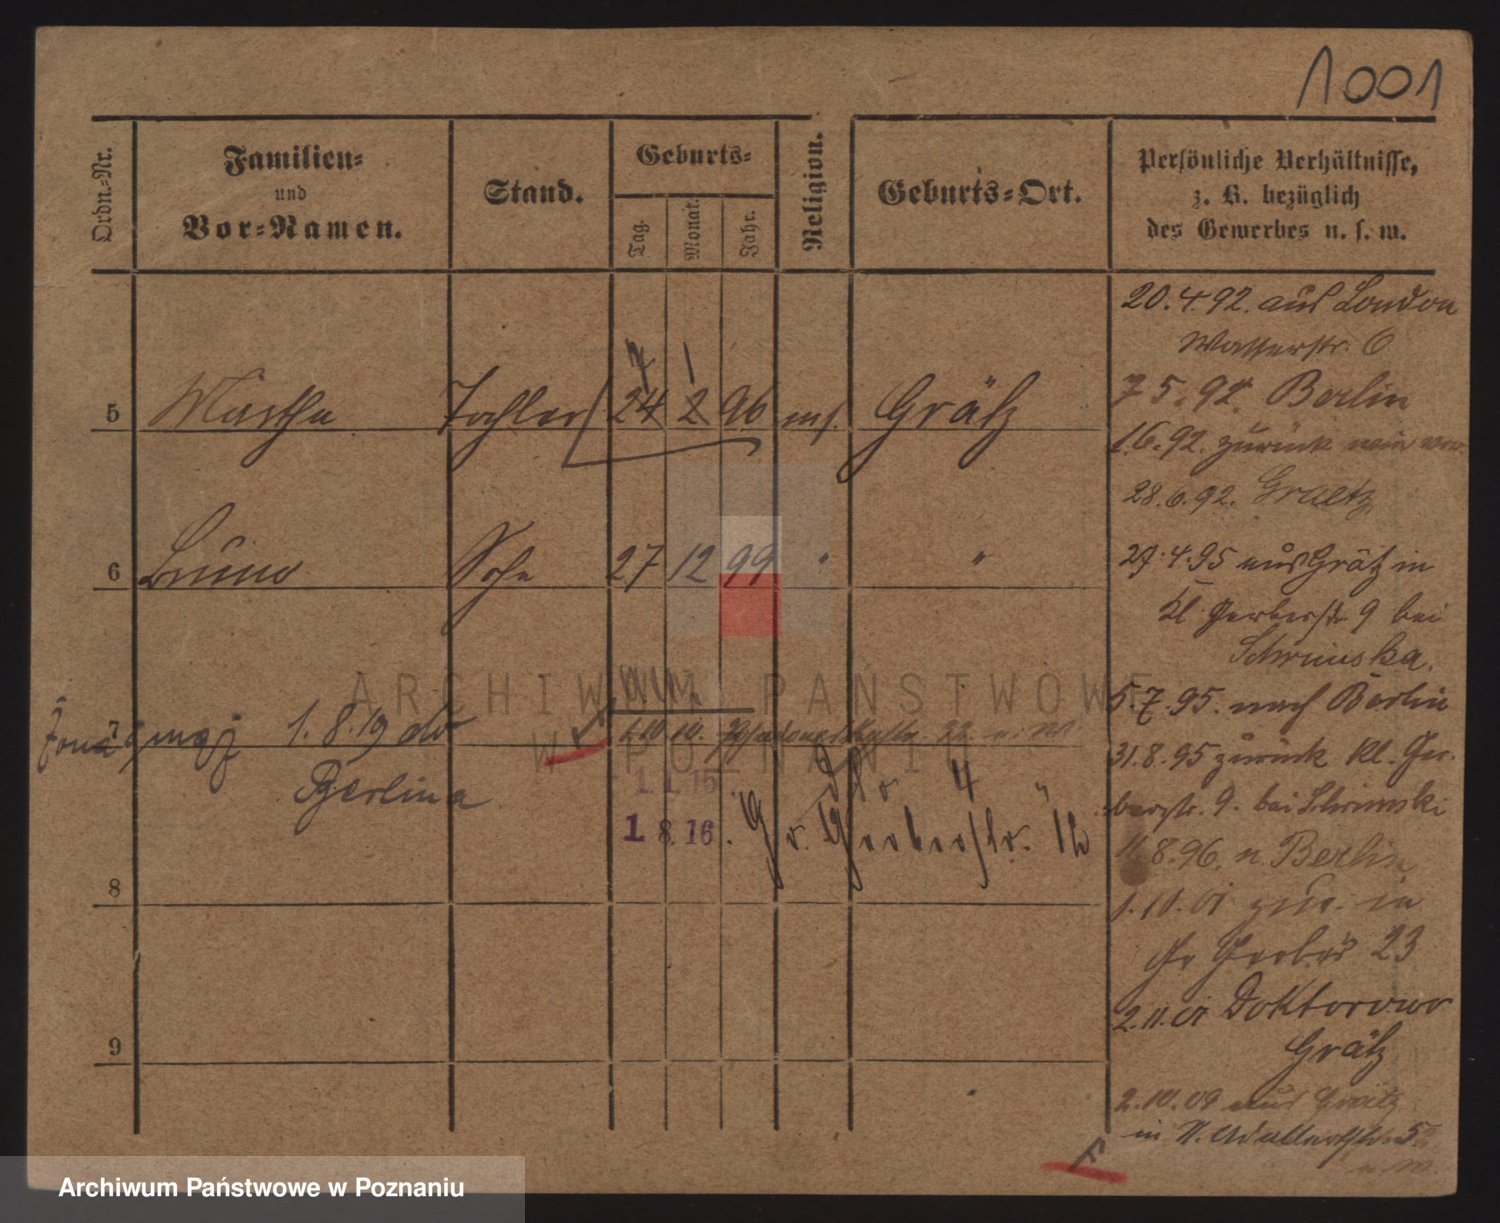 1001
Ordn.-Nr.
Familien-
und
Vor-Namen.
Stand.
Geburts-
Tag.
Monat.
Jahr.
Religion.
Geburts-Ort.
Persönliche Verhältnisse,
z. B. bezüglich
des Gewerbes u. s. w.
20.4.92. aus London
Wasserstr. 6
5 Martha Tochter 24 2 96 Grätz
7 5. 92. Berlin
1.6.92. zurück
28.6.92. Graetz
6 Bruno Sohn 27 12 99 " "
29.4.95 aus Grätz in
Kl. Gerberstr. 9 bei
Schrimska.
5.7.95. nach Berlin
7
1.8.19 do
Berlina
31.8.95 zurück Kl. Ger-
berstr. 9. bei Schrimski
1.1.15
1 8.16. Gr. Gerberstr. 12
8.96. n. Berlin
8
1.10.01 zur. in
Gr Gerberstr 23
2.11.01 Doktorowo
Grätz
9
2.10.09 aus Grätz
in
ARCHIWUM PAŃSTWOWE
W POZNANIU
Archiwum Państwowe w Poznaniu